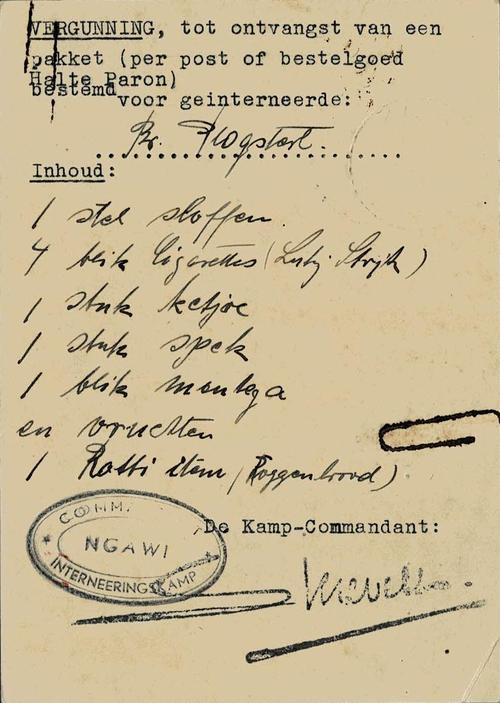 VERGUNNING, tot ontvangst van een
pakket (per post of bestelgoed
Halte Paron)
bestemd voor geinterneerde:
Br.
Inhoud:
1 stel sloffen
4 blik Cigarettes (Lucky Stryk)
1 stuk ketjoe
1 stuk spek
1 blik mentega
en vruchten
1 Rotti item (Roggenbrood)
De Kamp-Commandant:
COMM.
NGAWI
INTERNEERINGSKAMP